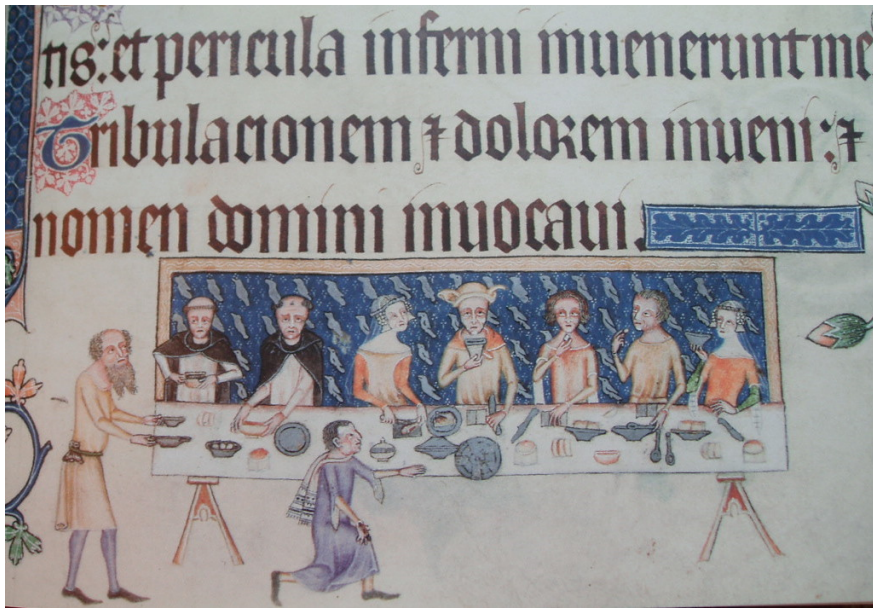 tis: et pericula inferni inuenerunt me
Tribulacionem ⁊ dolorem inueni: ⁊
nomen domini inuocaui.